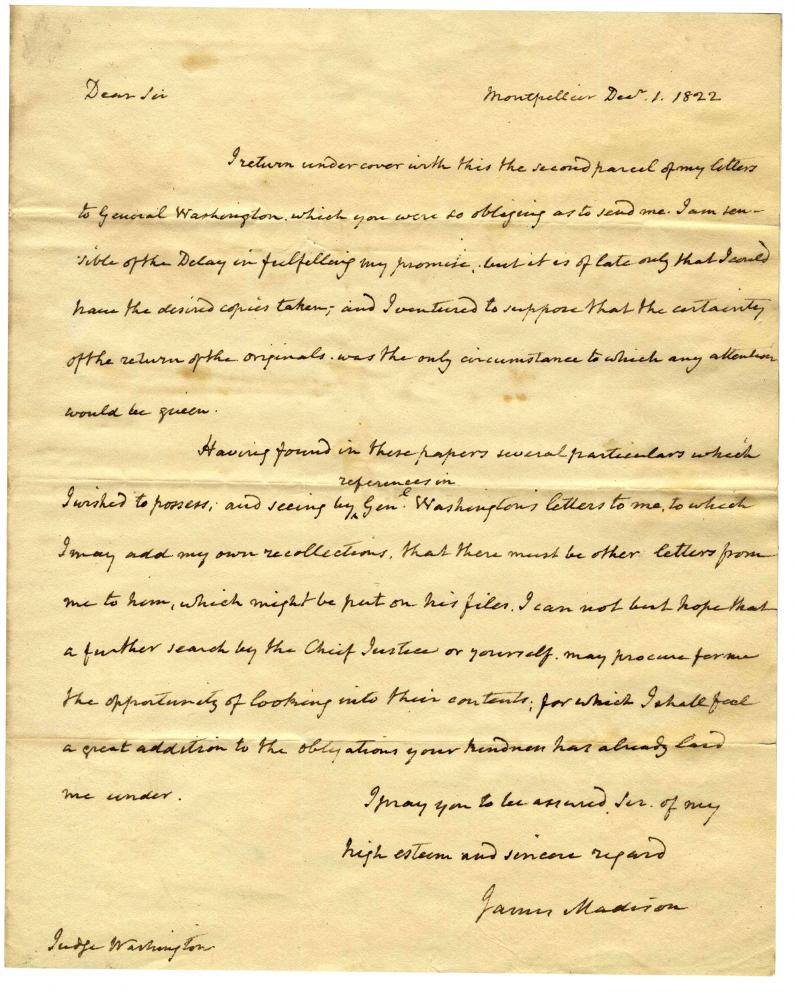 Dear Sir Montpellier Decr. 1. 1822
I return under cover with this the second parcel of my letters
to General Washington, which you were so obliging as to send me. I am sen-
sible of the Delay in fulfelling my promise; but it is of late only that I could
have the desired copies taken; and I ventured to suppose that the certainty
of the return of the originals was the only circumstance to which any attention
would be given.
Having found in these papers several particulars which
references in
I wished to possess; and seeing by ^ Genl. Washington's letters to me, to which
I may add my own recollections, that there must be other letters from
me to him, which might be put on his files, I can not but hope that
a further search by the Chief Justice or yourself may procure for me
the opportunity of looking into their contents; for which I shall feel
a great addition to the obligations your kindness has already laid
me under.
I pray you to be assured, Sir, of my
high esteem and sincere regard
James Madison
Judge Washington